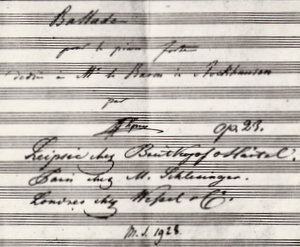 Ballade
pour le piano forte
dediée à Mr le Baron de Stockhausen
par
FChopin op. 23.
Leipsic chez Breitkopf & Härtel.
Paris chez M. Schlesinger.
Londres chez Wessel & Co.
M. S. 1928